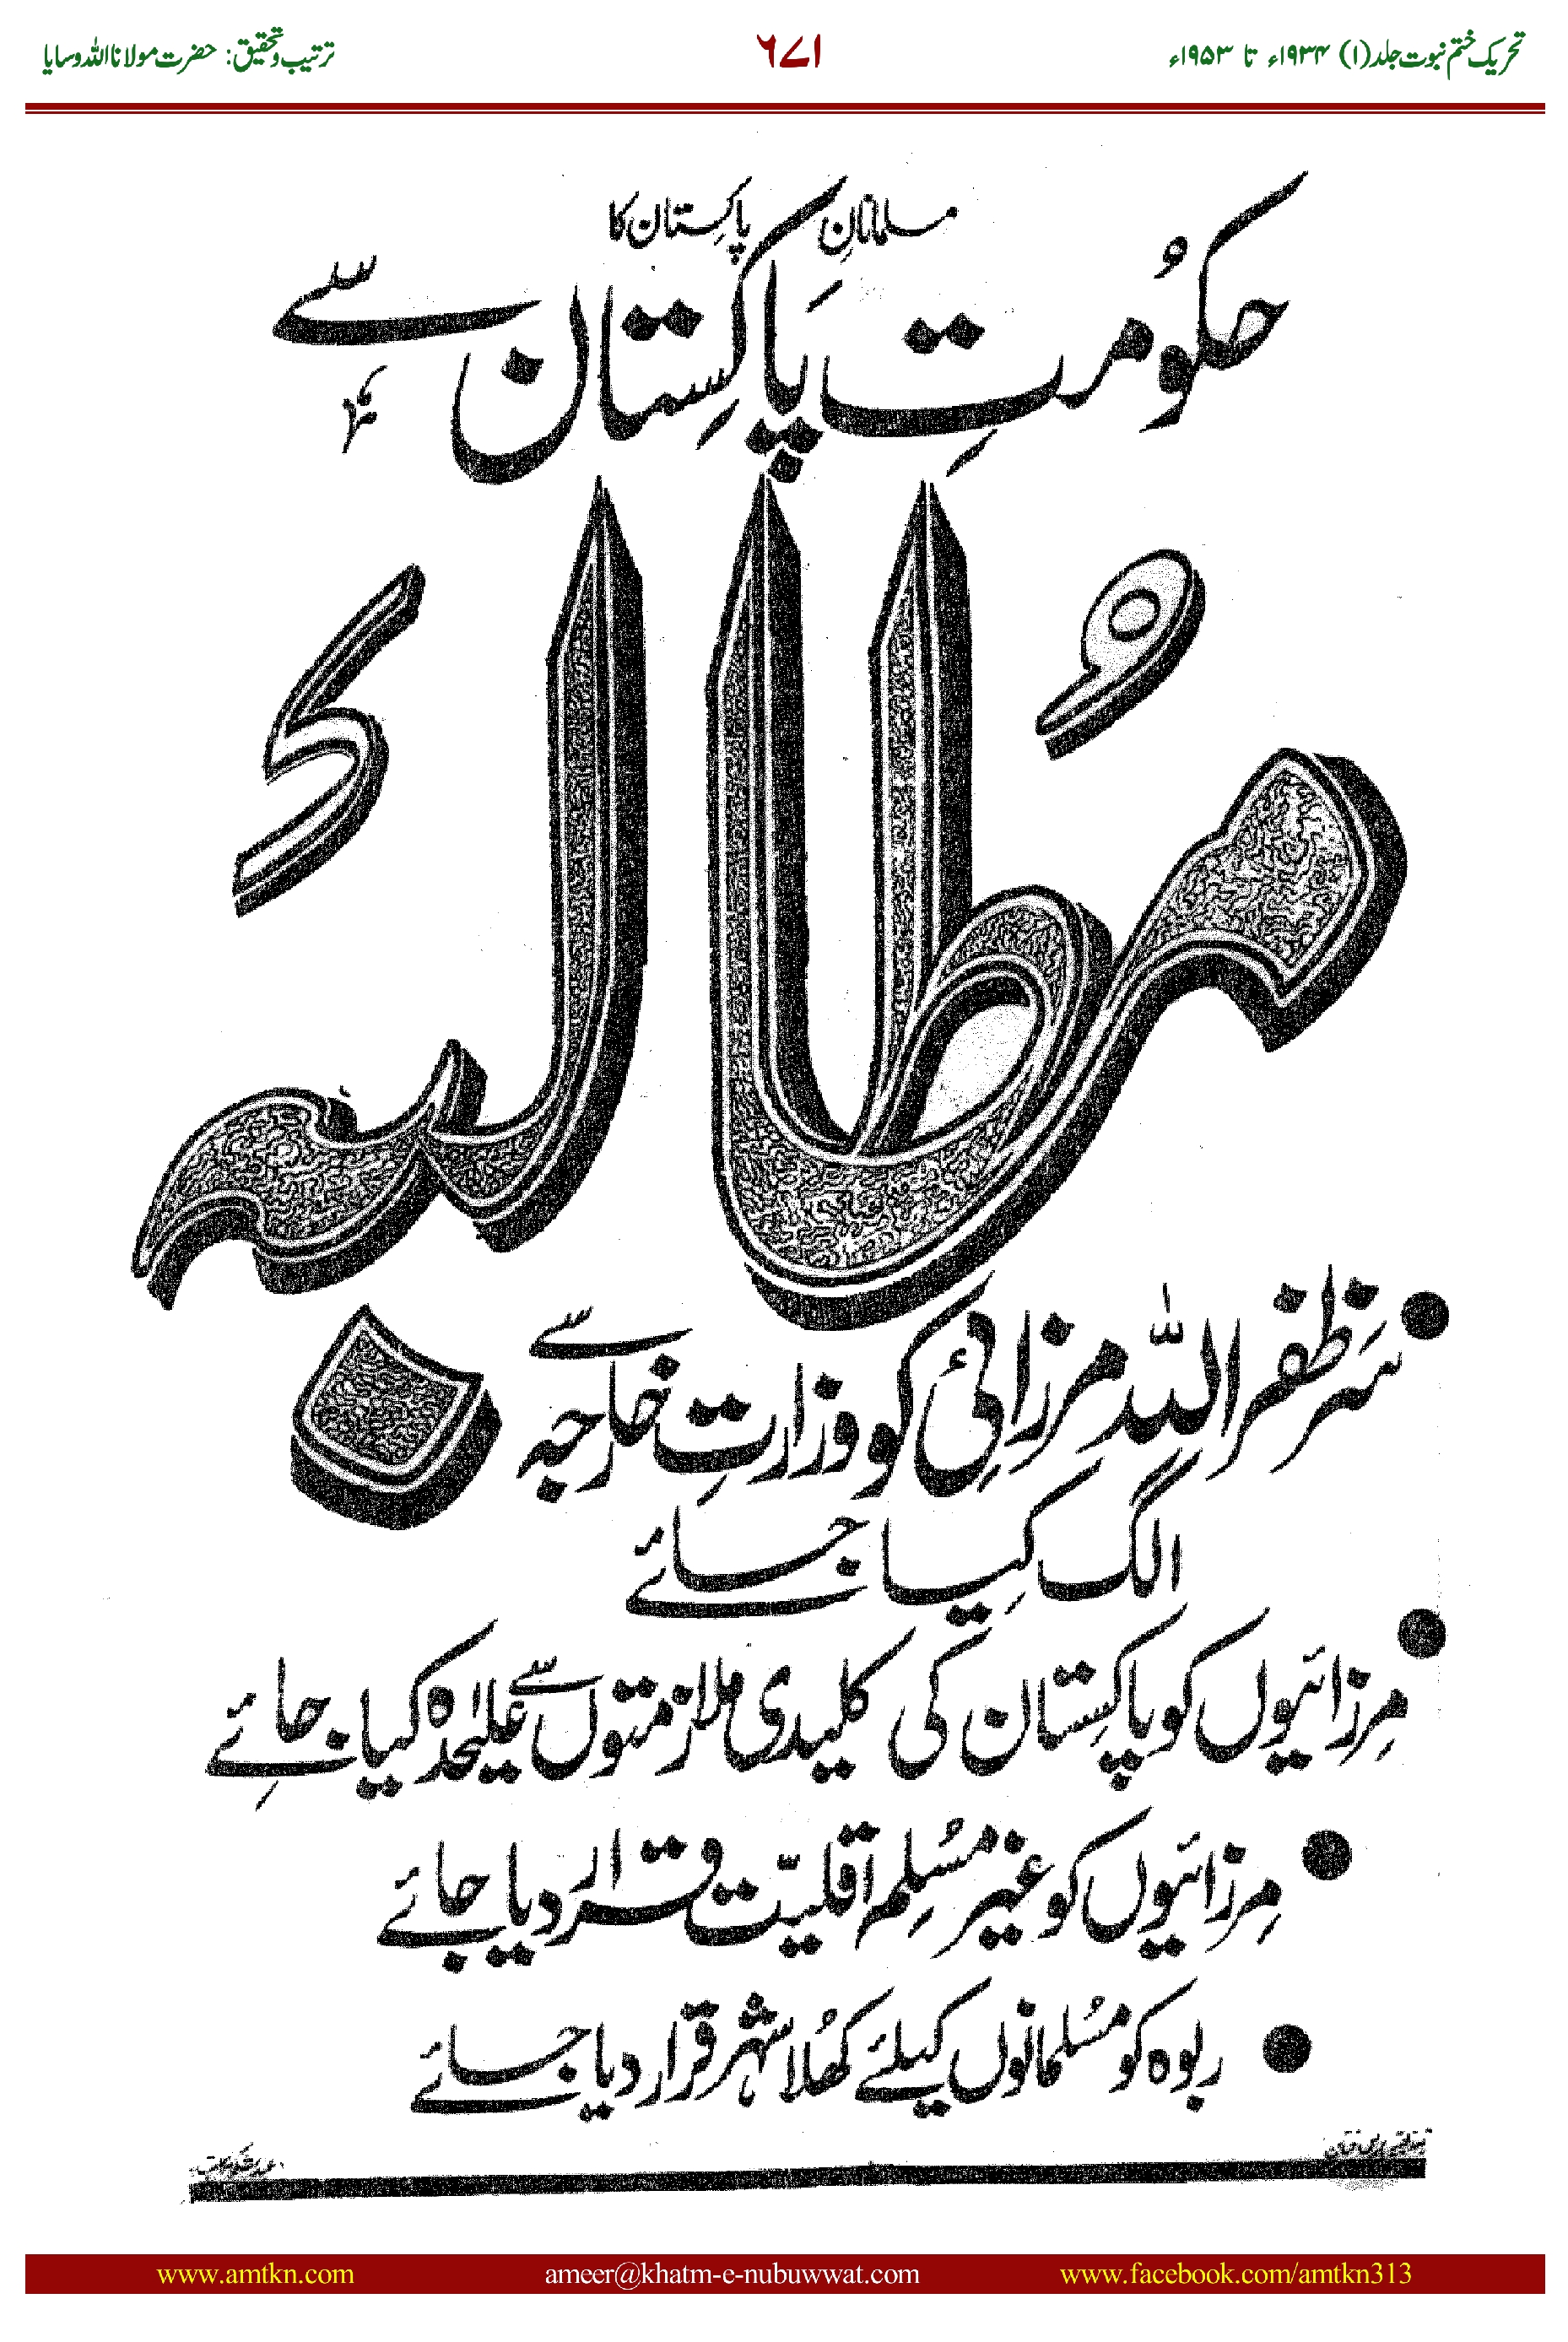 تحریک ختم نبوت جلد (۱) ۱۹۳۴ء تا ۱۹۵۳ء
۶۷۱
ترتیب و تحقیق: حضرت مولانا اللہ وسایا
مسلمانانِ پاکستان کا
حکُومتِ پاکِستان سے
مُطالبہ
سَر ظفر اللہ مرزائی کو وزارتِ خارجہ سے
الگ کیا جائے
مرزائیوں کو پاکستان کی کلیدی ملازمتوں سے علیٰحدہ کیا جائے
مرزائیوں کو غیر مُسلم اقلیّت قرار دیا جائے
ربوہ کو مُسلمانوں کیلئے کھُلا شہر قرار دیا جائے
www.amtkn.com
ameer@khatm-e-nubuwwat.com
www.facebook.com/amtkn313